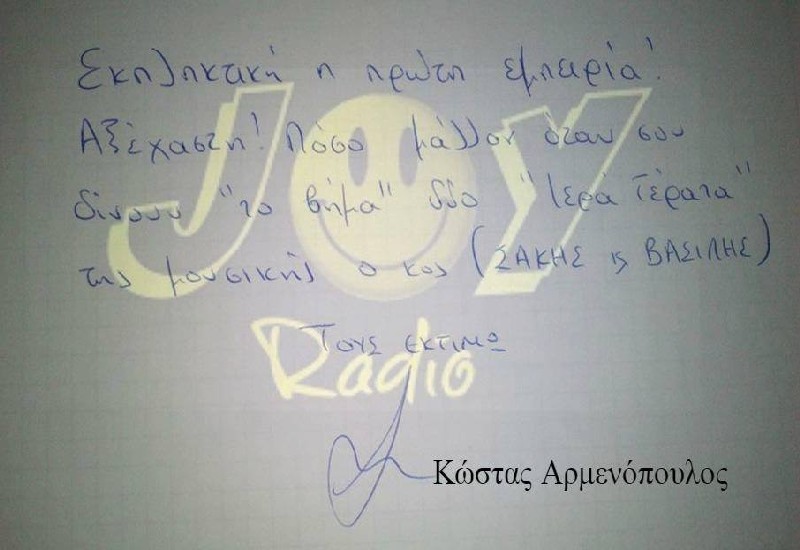 Εκπληκτική η πρώτη εμπειρία!
Αξέχαστη! Πόσο μάλλον όταν σου
δίνουν "το βήμα" δύο "Ιερά Τέρατα"
της μουσικής ο κος (ΣΑΚΗΣ ϗ ΒΑΣΙΛΗΣ)
JOY
Τους εκτιμώ
Radio
Κώστας Αρμενόπουλος